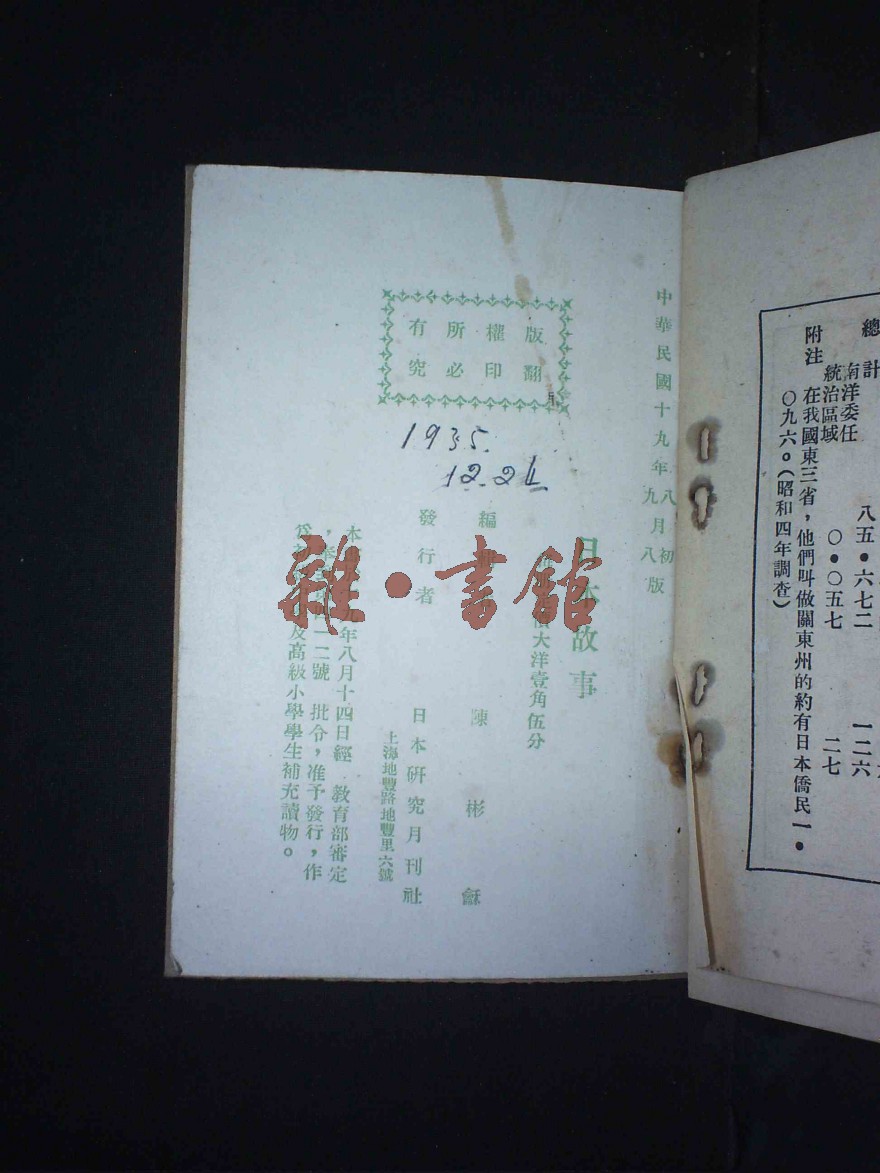 總計
南洋委任
統治區域
八五・六七二
〇・〇五七
一二六
二七
附注 在我國東三省,他們叫做關東州的約有日本僑民一・
〇九六。(昭和四年調查)
中華民國十九年八月初版
九 八
版權所有
翻印必究
1935.
12.24
日本故事
大洋壹角伍分
編 陳彬龢
發行者 日本研究月刊社
上海地豐路地豐里六號
本 九年八月十四日經 教育部審定
一二號 批令,准予發行,作
及高級小學學生補充讀物。
雜・書館